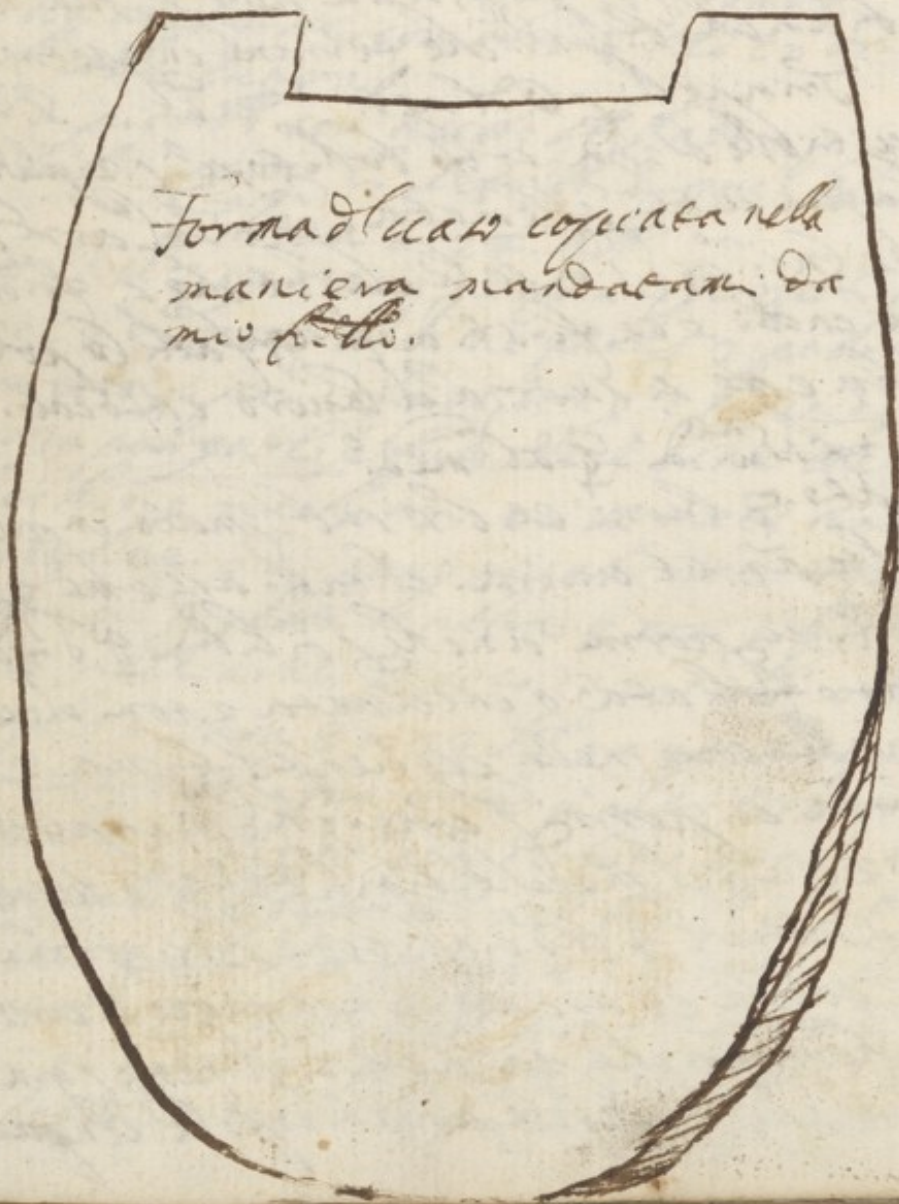 Forma dl uaso copiata nella
maniera mandatami da
mio